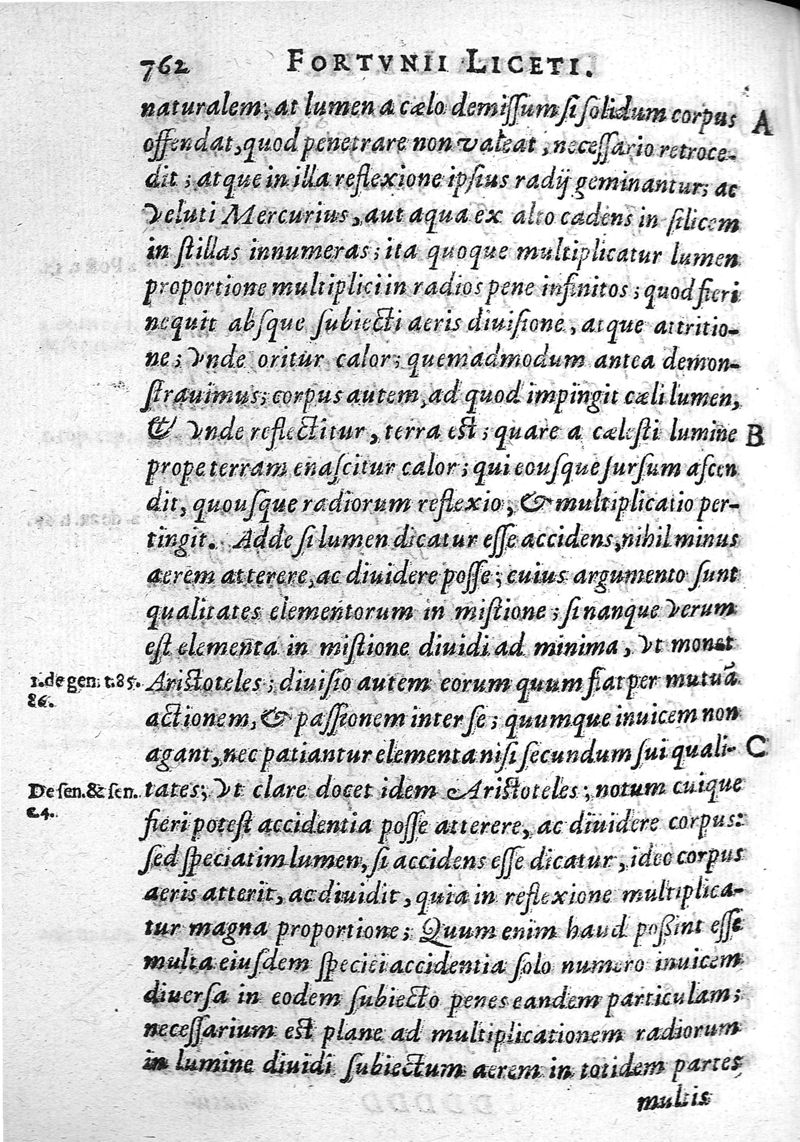 762 FORTVNII LICETI.
naturalem; at lumen a cælo demiſſum ſi ſolidum corpus A
offendat, quod penetrare non valeat, neceſſario retroce-
dit; atque in illa reflexione ipſius radij geminantur; ac
veluti Mercurius, aut aqua ex alto cadens in ſilicem
in ſtillas innumeras; ita quoque multiplicatur lumen
proportione multiplici in radios pene infinitos; quod fieri
nequit abſque ſubiecti aeris diuiſione, atque attritio-
ne; vnde oritur calor; quemadmodum antea demon-
ſtrauimus; corpus autem, ad quod impingit cæli lumen,
& vnde reflectitur, terra eſt; quare a cæleſti lumine B
prope terram enaſcitur calor; qui eouſque ſurſum aſcen
dit, quouſque radiorum reflexio, & multiplicatio per-
tingit. Adde ſi lumen dicatur eſſe accidens, nihil minus
aerem atterere, ac diuidere poſſe; cuius argumento ſunt
qualitates elementorum in miſtione; ſi nanque verum
eſt elementa in miſtione diuidi ad minima, vt monet
1. de gen. t. 85. Ariſtoteles; diuiſio autem eorum quum fiat per mutuã
86. actionem, & paſſionem inter ſe; quumque inuicem non
agant, nec patiantur elementa niſi ſecundum ſui quali- C
De ſen. & ſen. tates; vt clare docet idem Ariſtoteles; notum cuique
c. 4. fieri poteſt accidentia poſſe atterere, ac diuidere corpus:
ſed ſpeciatim lumen, ſi accidens eſſe dicatur, ideo corpus
aeris atterit, ac diuidit, quia in reflexione multiplica-
tur magna proportione; Quum enim haud poßint eſſe
multa eiuſdem ſpeciei accidentia ſolo numero inuicem
diuerſa in eodem ſubiecto penes eandem particulam;
neceſſarium eſt plane ad multiplicationem radiorum
in lumine diuidi ſubiectum aerem in totidem partes
multis